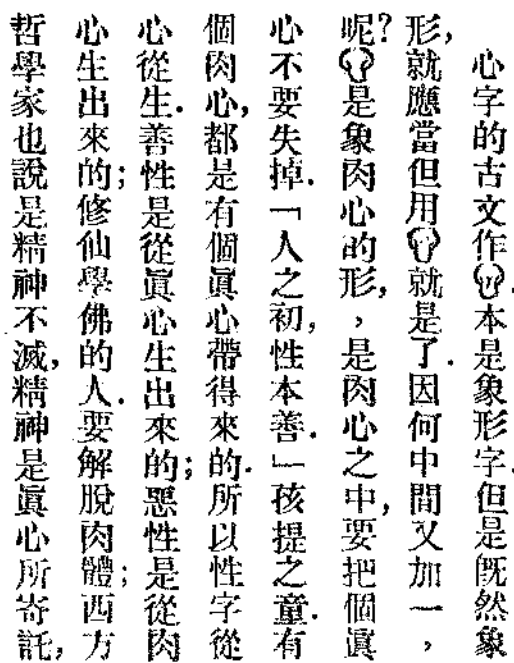 心字的古文作.本是象形字.但是旣然象
形,就應當但用就是了.因何中間又加一,
呢?是象肉心的形,,是肉心之中,要把個眞
心不要失掉.「人之初,性本善.」孩提之童.有
個肉心,都是有個眞心帶得來的.所以性字從
心從生.善性是從眞心生出來的;惡性是從肉
心生出來的;修仙學佛的人.要解脫肉體;西方
哲學家也說是精神不滅,精神是眞心所寄託,